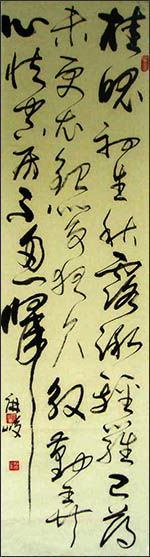 桂魄初生秋露微輕羅已薄
未更衣銀筝夜久殷勤弄
心怯空房不忍歸